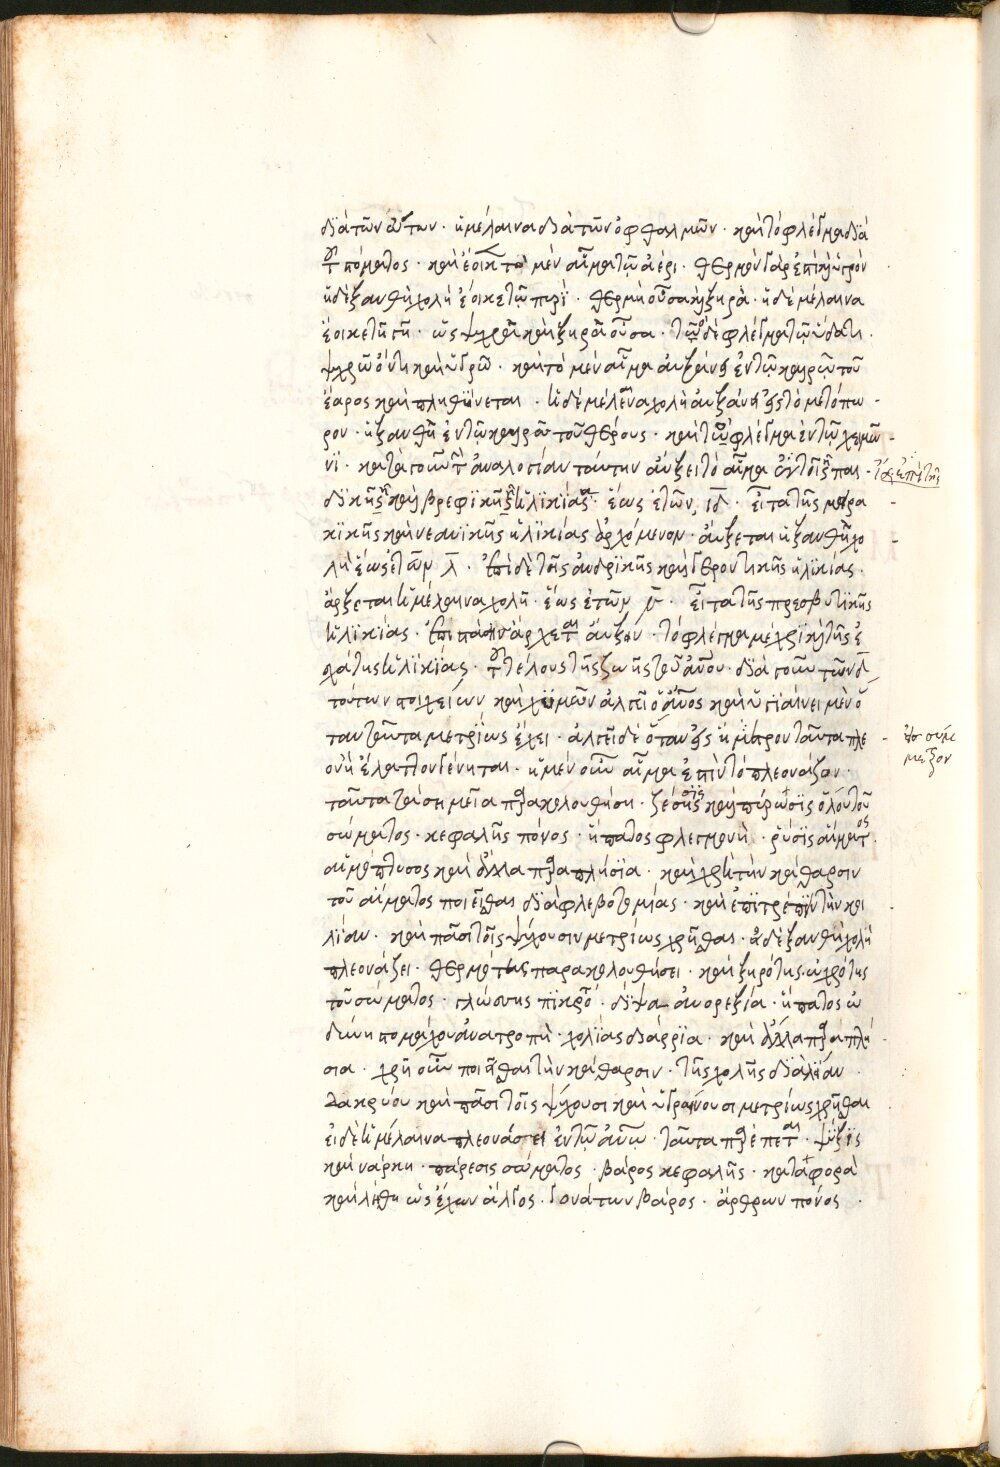 διὰ τῶν ὤτων · ἡ μέλαινα διὰ τῶν ὀφθαλμῶν · καὶ τὸ φλέγμα διὰ
τοῦ στόματος · καὶ ἔοικε τὸ μὲν αἷμα τῷ ἀέρι · θερμὸν γὰρ ἐστὶ καὶ ὑγρόν
ἡ δὲ ξανθὴ χολὴ ἔοικε τῷ πυρί · θερμὴ οὖσα καὶ ξηρὰ · ἡ δὲ μέλαινα
ἔοικε τῇ γῇ · ὡς ψυχρὰ καὶ ξηρὰ οὖσα · τὸ δὲ φλέγμα τῷ ὕδατι ·
ψυχρῶ ὄντι καὶ ὑγρῶ · καὶ τὸ μὲν αἷμα αὐξάνει ἐν τῷ καιρῷ τοῦ
ἔαρος καὶ πληθύνεται · ἡ δὲ μέλαινα χολὴ αὐξάνει εἰς τὸ μετόπω-
ρον · ἡ ξανθὴ ἐν τῷ καιρῷ τοῦ θέρους · καὶ τὸ φλέγμα ἐν τῷ χειμῶ-
νι · κατὰ γοῦν τὴν ἀναλογίαν ταύτην αὔξει τὸ αἷμα ἐν τοῖς παι-
δικῆς καὶ βρεφικῆς ἡλικίας · ἕως ἐτῶν ιδ · εἶτα τῆς μειρα
κικῆς καὶ νεανικῆς ἡλικίας ἀρχόμενον · αὔξεται ἡ ξανθὴ χο
λὴ ἕως ἐτῶν λ · ἐπὶ δὲ τῆς ἀνδρικῆς καὶ γεροντικῆς ἡλικίας ·
ἄρξεται ἡ μέλαινα χολὴ · ἕως ἐτῶν · εἶτα τῆς πρεσβυτικῆς
ἡλικίας · ἄρχεται αὔξειν · τὸ φλέγμα μέχρι καὶ τῆς ἐ
σχάτης ἡλικίας · τοῦ τέλους τῆς ζωῆς τοῦ ἀνου · διὰ γοῦν τῶν δ
τούτων στοιχείων καὶ χυμῶν ἀλγεῖ ὁ ἀνος καὶ ὑγιαίνει μὲν ὅ
ταν ταῦτα μετρίως ἔχει · ἀλγεῖ δὲ ὅταν εἰς ἥμιτρον ταῦτα πλε
ον ἢ ἔλαττον γένηται · ἡ μὲν οὖν αἷμα ἐπὶ τὸ πλεονάζον ·
ταῦτα τὰ σημεῖα παρακολουθήσει · ζέσις καὶ πύρωσις ὅλου τοῦ
σώματος · κεφαλῆς πόνος · ἥπατος φλεγμονὴ · ῥύσις αἵματος ·
αἱμόπτυσος καὶ ἄλλα παραπλήσια · καὶ χρὴ τὴν κάθαρσιν
τοῦ αἵματος ποιεῖσθαι διὰ φλεβοτομίας · καὶ ἐπιτρέπειν τὴν κοι
λίαν · καὶ πᾶσι τοῖς ψύχουσιν μετρίως χρῆσθαι · ἂ δὲ ξανθὴ χολὴ
πλεονάζει · θερμότης παρακολουθήσει · καὶ ξηρότης · ὠχρότης
τοῦ σώματος · γλώσσης πικρό · δίψα ἀνορεξία · ἥπατος ὀ
δύνη στομάχου ἀνατροπὴ · χολίας διάρρια · καὶ ἄλλα παραπλή
σια · χρὴ οὖν ποιεῖσθαι τὴν κάθαρσιν · τῆς χολῆς διὰ λίαν
δακρύου καὶ πᾶσι τοῖς ψύχουσι καὶ ὑγραίνουσι μετρίως χρῆσθαι
εἰ δὲ ἡ μέλαινα πλεονάσει ἐν τῷ ἀνω · ταῦτα παρέπεται · ψύξις
καὶ νάρκη · πάρεσις σώματος · βάρος κεφαλῆς · καταφορὰ
καὶ λήθη ὡς ἔχων ἄλγος · γονάτων βάρος · ἄρθρων πόνος ·